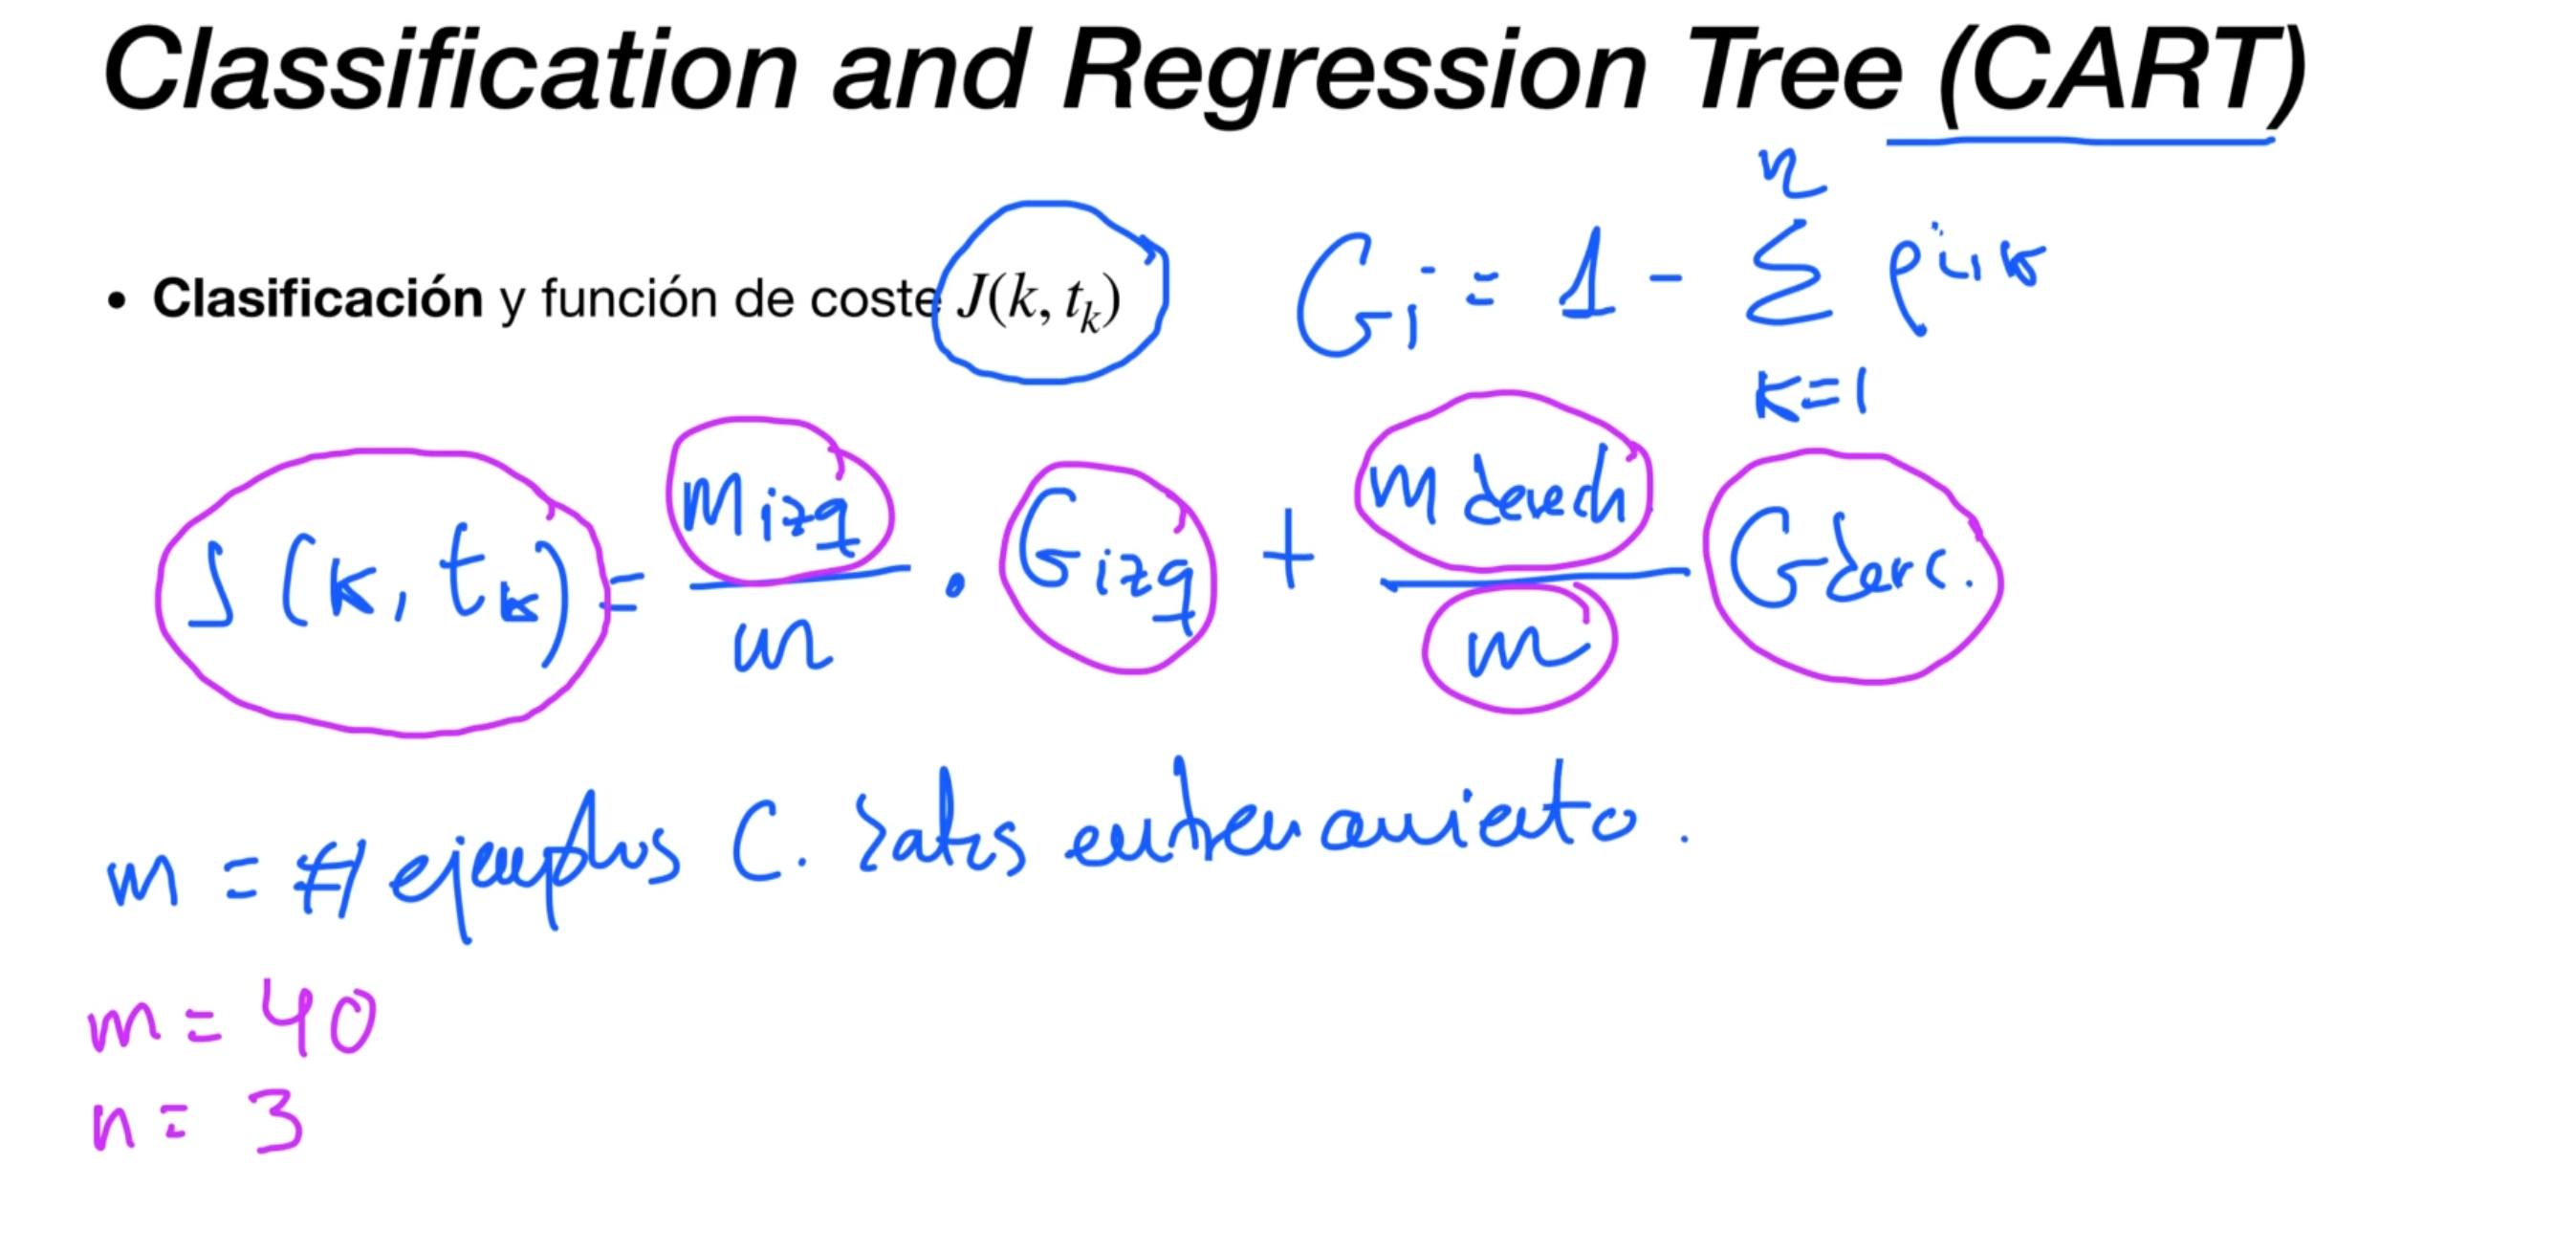 Classification and Regression Tree (CART)
• Clasificación y función de coste J(k, t_k)
G_i = 1 - Σ_{k=1}^{n} p_{i,k}
J(k, t_k) = m izq / m · G izq + m derech / m G derc.
m = # ejemplos C. Datos entrenamiento.
m = 40
n = 3